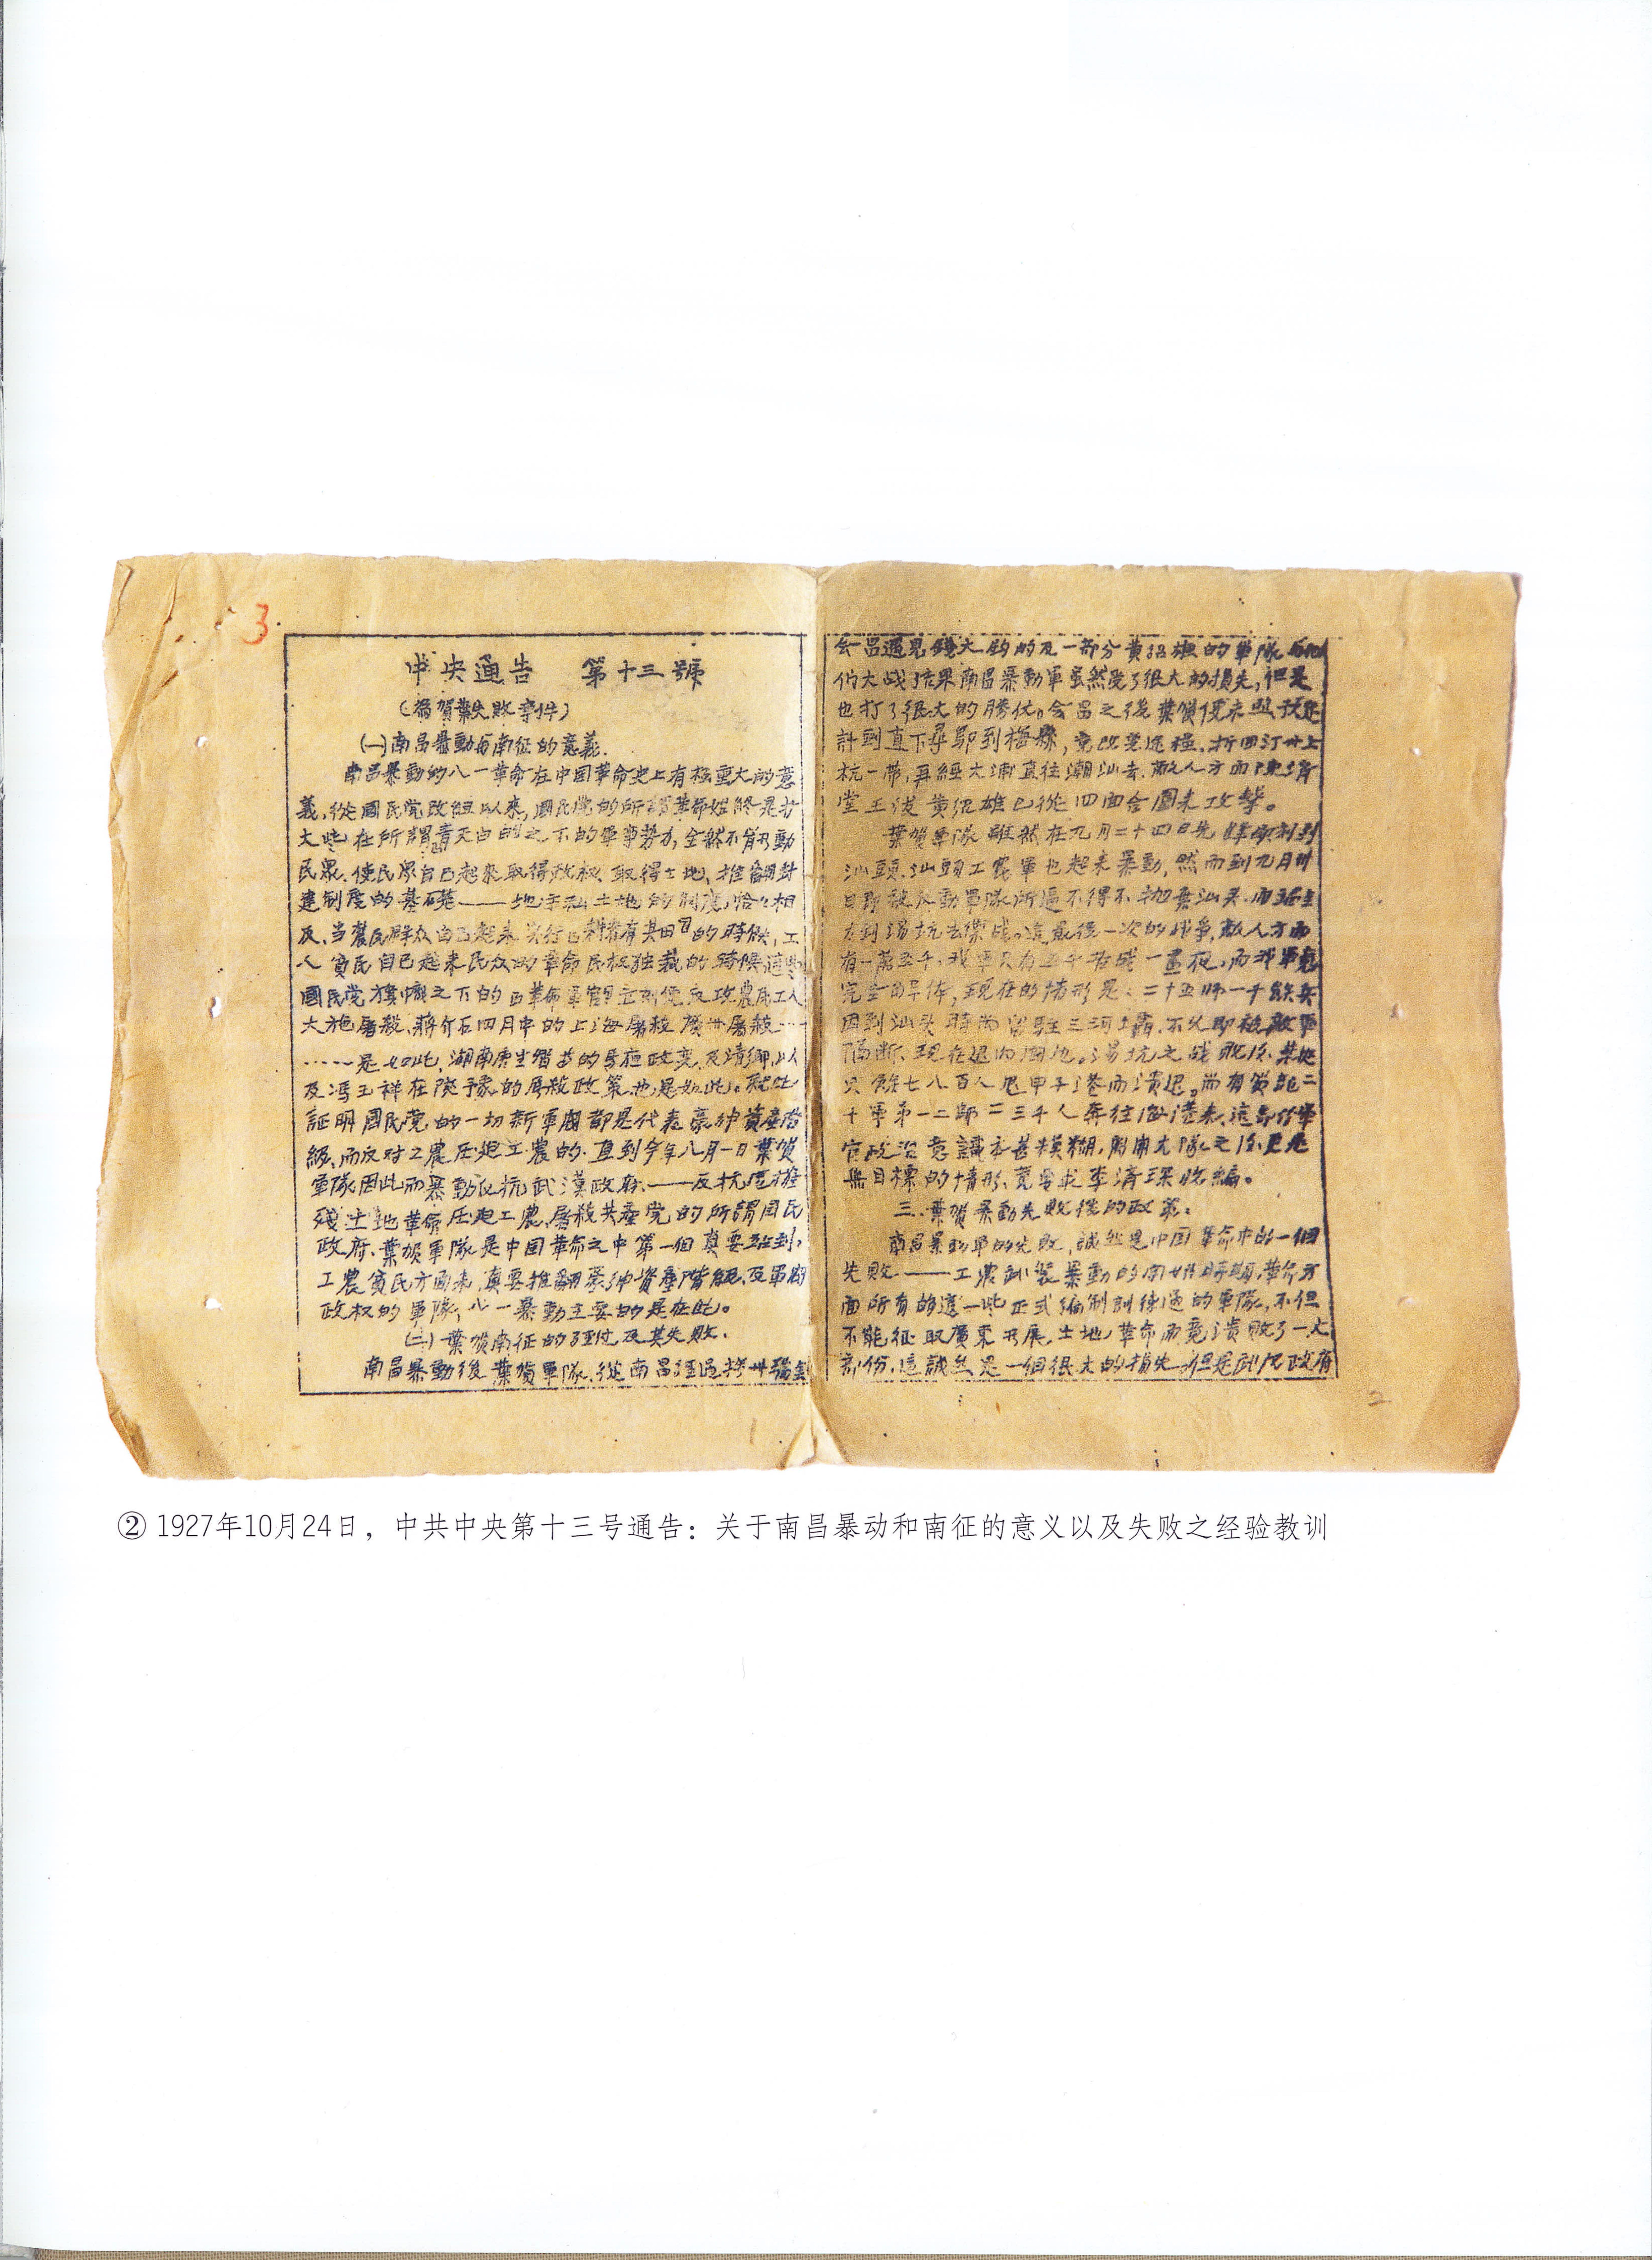 3
中央通告 第十三號
(為賀葉失敗事件)
(一)南昌暴動与南征的意義.
南昌暴動的八一革命在中囯革命史上有極重大的意
義,從國民党改組以來,國民党的所謂革命始終是
大 在所謂青天白 之下的軍事势力,全然不 動
民眾.使民眾自己起來取得政权、取得土地、推翻封
建制度的基礎——地主私 土地的制度,恰 相
反、当農民群众自己起來实行 耕者有其田 的時候,工
人 貧民自己起来民众的革命民权独裁的時候 這些
國民党 旗幟之下的 革命軍官 立刻便反攻農民工人
大施屠殺、蔣介石四月中的上海屠殺 廣州屠殺……
……是如此,湖南 的 政变,及清鄉,以
及馮玉祥在陕豫的屠殺政策也是如此。 此
証明國民党的一切新軍閥都是代表豪紳資產階
級、而反对工農压迫工農的.直到今年八月一日葉賀
軍隊因此而暴動 抗武漢政府.——反抗 摧
殘土地革命压迫工農、屠殺共產党的所謂囯民
政府.葉賀軍隊是中囯革命之中第一個真要站到
工農貧民方面来,真要推翻豪紳資產階級、及軍閥
政权的軍隊,八一暴動主要的是在此。
(二)葉賀南征的 及其失敗.
南昌暴動後葉賀軍隊、從南昌經過 州瑞金
会昌遇見錢大鈞的及一部分黃紹雄的軍隊 他
们大战,结果南昌暴動軍虽然受了很大的損失,但是
也打了很大的勝仗。会昌之後葉賀便未照預定
計 直下尋鄔到梅縣,竟改变途徑、折回汀州上
杭一帶,再經大浦直往潮汕去.敵人方面陳濟
堂王浚黃紹雄已從四面合圍来攻擊。
葉賀軍隊雖然在九月二十四日先 到
汕頭.汕頭工農軍也起来暴動,然而到九月卅
日即被反動軍隊所逼不得不抛棄汕头.而
力到湯坑去 战。這最後一次的战争,敵人方面
有一萬五千,我軍只有五千 战一晝夜,而我軍竟
完全 体,現在的情形是:二十五师一千餘兵
因到汕头時 留駐三河壩.不久即被敵軍
隔断、現在退 。湯坑之战敗後、葉挺
只餘七八百人 甲子港而潰退。尚有賀龍二
十軍第一二師二三千人奔往海港来、這部份軍
官政治意識 甚模糊,開 大隊之後,更是
無目標的情形、竟要求李濟琛收編。
三.葉賀暴動失敗後的政策:
南昌暴動軍的失敗,誠然是中囯革命中的一個
失敗——工農武装暴動的開始時期,革命方
面所有的這一些正式编制訓練過的軍隊,不但
不能征取廣東 展土地革命而竟潰敗了一大
部份.這誠然是一個很大的損失.但是武 政府
2
② 1927年10月24日，中共中央第十三号通告：关于南昌暴动和南征的意义以及失败之经验教训